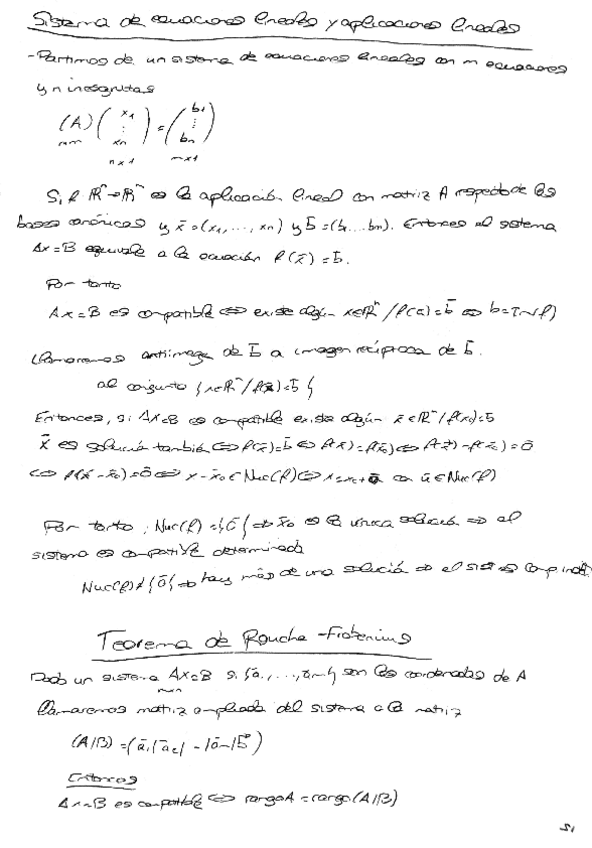 Sistema de ecuaciones lineales y aplicaciones lineales
-Partimos de un sistema de ecuaciones lineales con m ecuaciones
y n incognitas
(A) (x1 ⋮ xn) = (b1 ⋮ bn)
mxn nx1 mx1
Si f ℝⁿ→ℝᵐ es la aplicación lineal con matriz A respecto de las
bases canónicas y x̄=(x1,...,xn) y b̄=(b1...bn). Entonces el sistema
Ax=B equivale a la ecuación f(x̄)=b̄.
Por tanto
Ax=B es compatible ⇔ existe algún x∈ℝⁿ/f(x)=b̄ ⇔ b=Im(f)
Llamaremos antiimagen de b̄ a imagen recíproca de b̄.
al conjunto {x∈ℝⁿ/f(x̄)=b̄}
Entonces, si Ax=B es compatible existe algún x̄∈ℝⁿ/f(x0)=b
x̄ es solución también ⇔ f(x̄)=b̄ ⇔ f(x̄)=f(x̄0) ⇔ f(x̄)-f(x̄0)=ō
⇔ f(x̄-x̄0)=ō ⇔ x-x̄0∈Nuc(f) ⇔ x=x0+ū con ū∈Nuc(f)
Por tanto, Nuc(f)={ō} ⇒ x̄0 es la única solución ⇒ el
sistema es compatible determinado
Nuc(f)≠{ō} ⇒ hay más de una solución ⇒ el sist es comp indet
Teorema de Rouche-Frobenius
Dado un sistema Ax=B si {ā1,...,ān} son las coordenadas de A
mxn
llamaremos matriz ampliada del sistema a la matriz
(A|B)=(ā1|ā2|-|ān|b̄)
Entonces
Ax=B es compatible ⇔ rango A=rango(A|B)